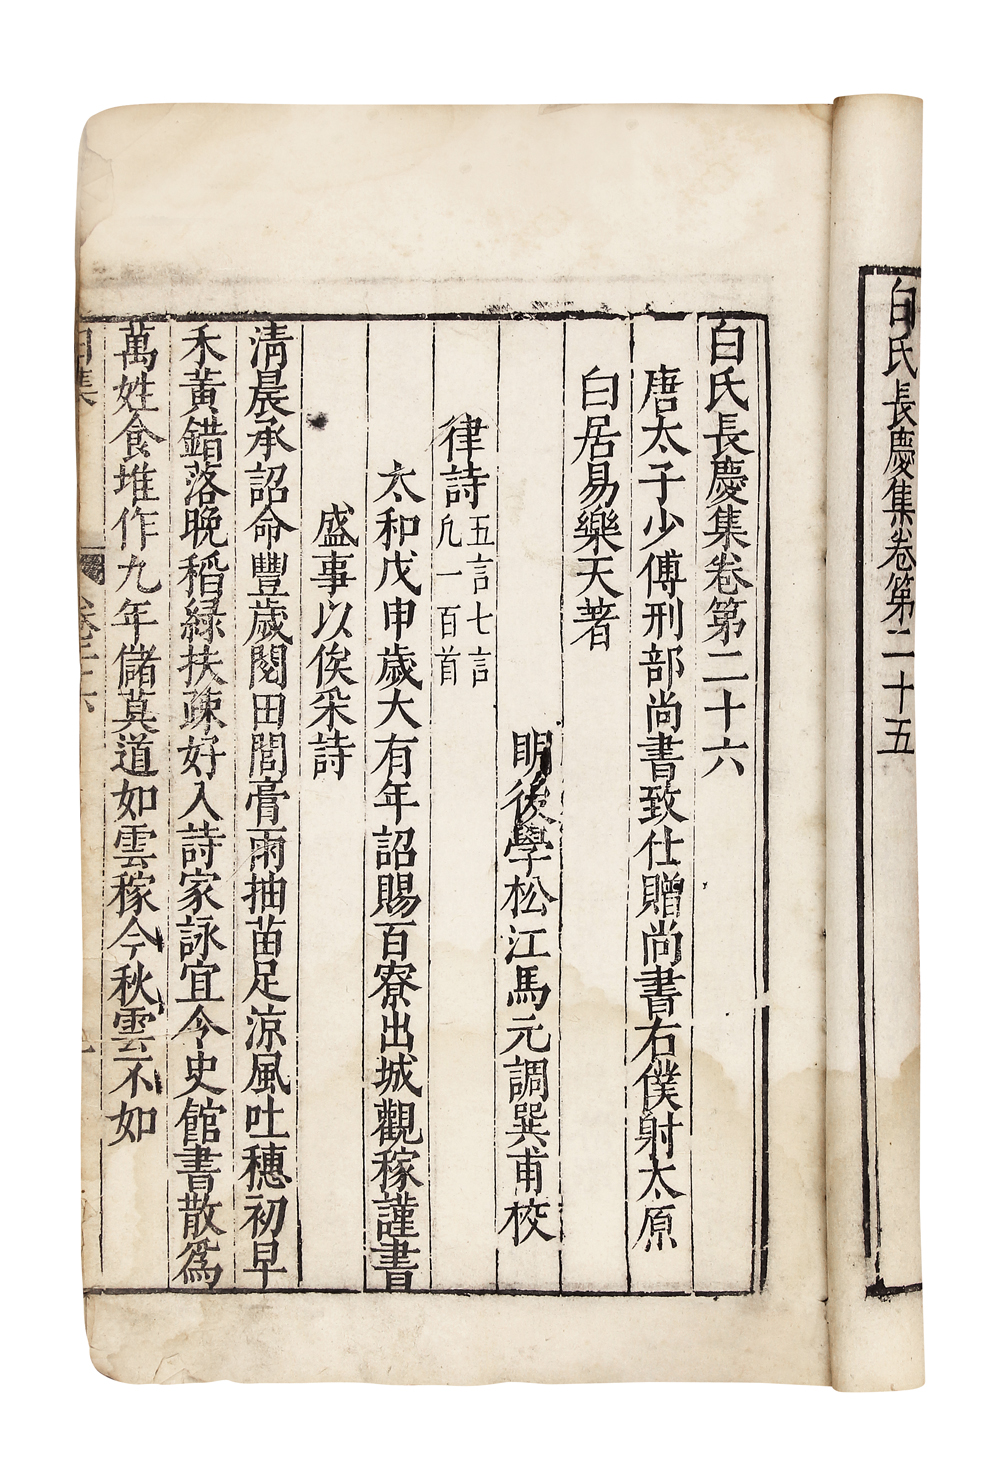 白氏長慶集卷第二十五
白氏長慶集卷第二十六
唐太子少傅刑部尚書致仕贈尚書右僕射太原
白居易樂天著
明後學松江馬元調巽甫校
律詩
五言七言
凡一百首
太和戊申歲大有年詔賜百寮出城觀稼謹書
盛事以俟采詩
清晨承詔命豐歲閱田閭膏雨抽苗足涼風吐穗初早
禾黃錯落晚稻緑扶疎好入詩家詠宜令史館書散爲
萬姓食堆作九年儲莫道如雲稼今秋雲不如